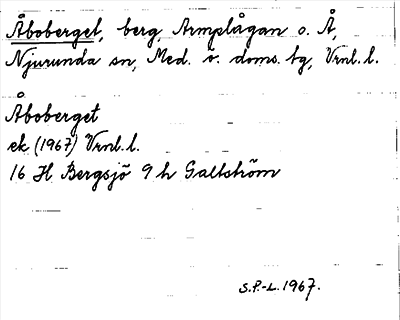 Åboberget, berg, Armplågan o. Å,
Njurunda sn, Med. ö. doms. tg, Vrnl. l.
Åboberget
ek (1967) Vrnl. l.
16 H Bergsjö 9 h Galtström
S.P.-L. 1967.